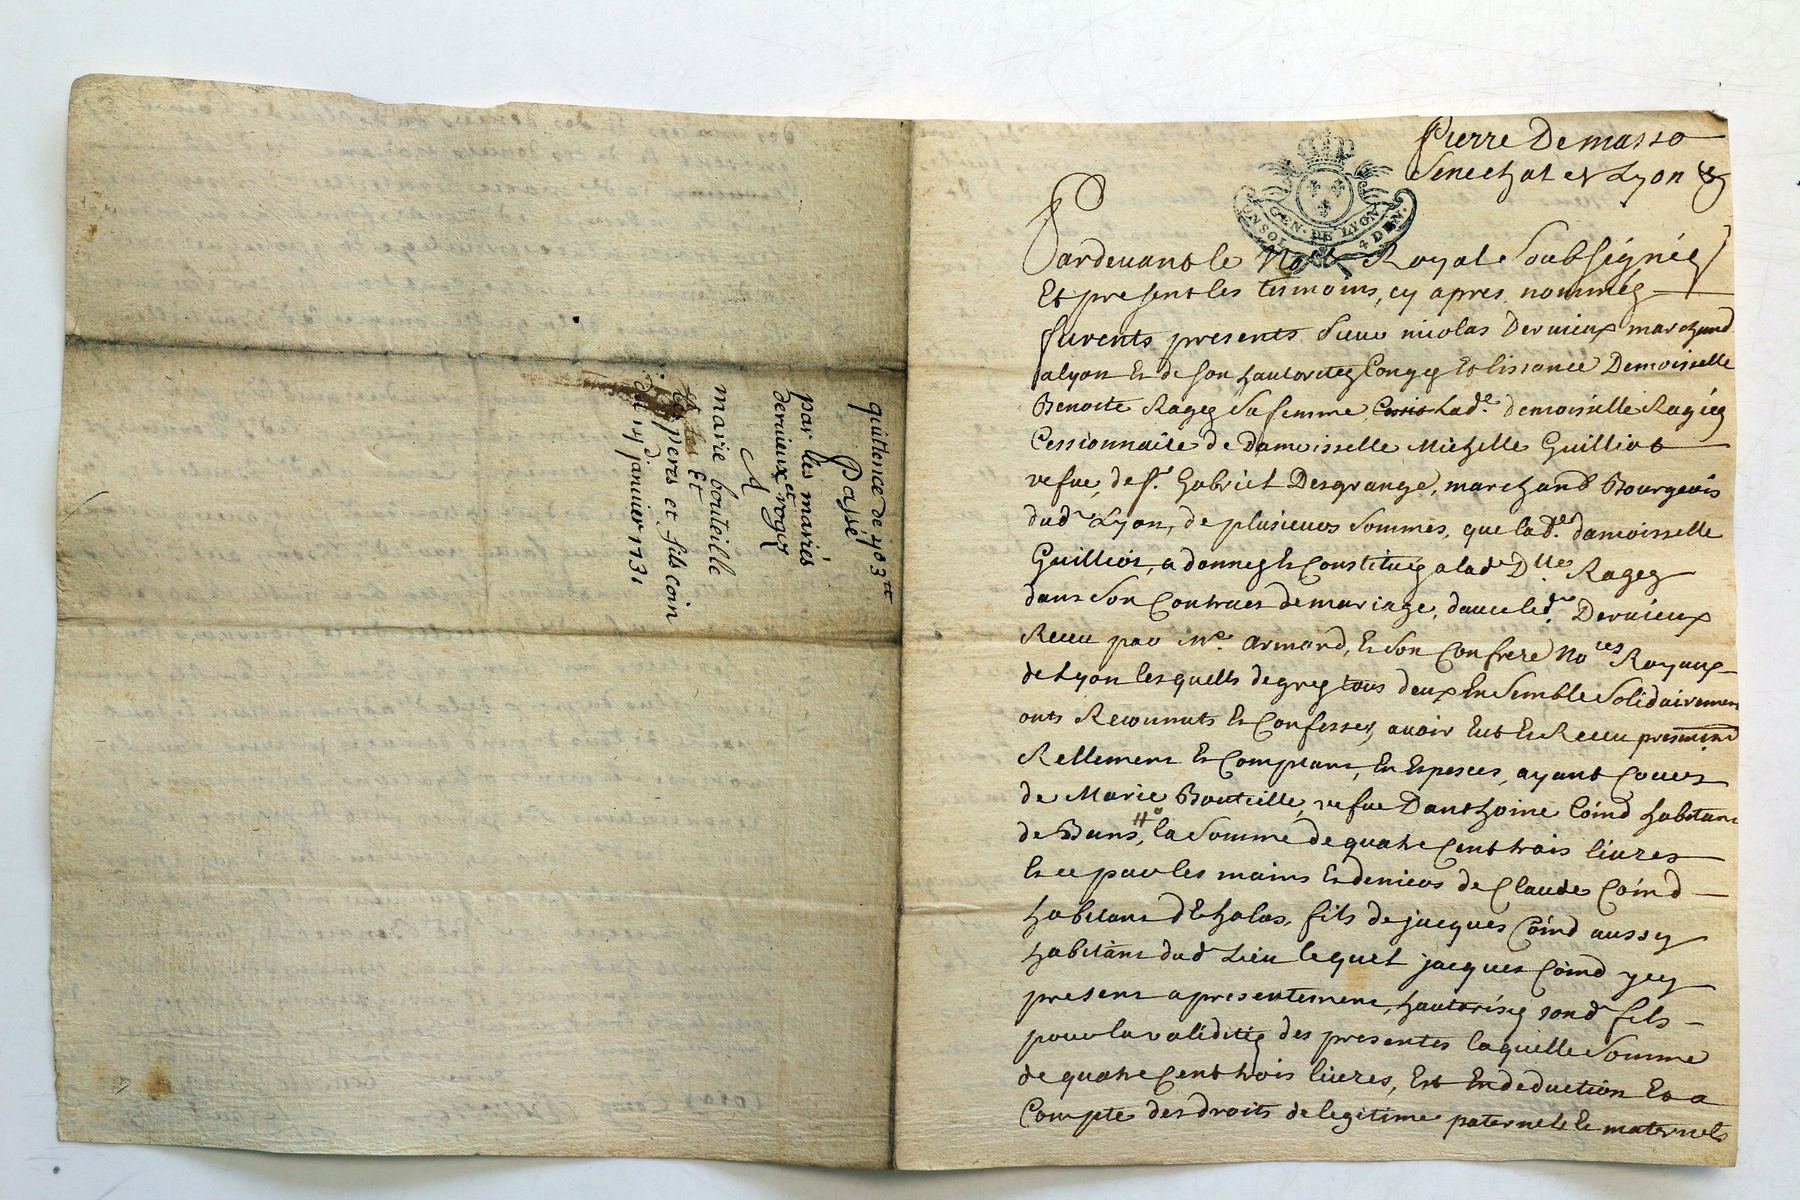 quittence de 403tt
Passé
par les mariés
deruieux et roges
A
marie bouteille
Et
les peres et fils coin
du 14 d januier 1731
Pierre Demasso
Senechal et Lyon &
GEN. DE LYON
UN SOL 4 DEN.
Pardeuant le Nore Royal Soubsignéz
Et presents les tesmoins, cy apres nomméz
furents presents Sieur nicolas Deruieux marchand
alyon Et de son hautoritez Congez Et lissance Demoiselle
Benoite Ragez Sa femme, Cessio Lade. demoiselle Ragiez
Cessionnaire de Damoisselle Michelle Guilliot
vefue, de sr. Gabriel Desgrange, marchand Bourgeois
dudt Lyon, de plusieurs Sommes, que lade. damoisselle
Guilliot, a donnez Et Constituez a lade Dlles Ragez
dans Son Contract de mariage, dauec led. Deruieux
Receu par Me. Armand, Et Son Confrere Nores Royaux
de Lyon lesquells de grez tous deux Ensemble Solidairement
onts Reconnuts Et Confesser, auoir Eut Et Receu
Rellement Et Comptant, En Especes, ayant Cours
de Marie Bouteille, vefue Danthoine Coind habitant
de Buns, la Somme de quatre Cent trois liures
Et ce par les mains Et deniers de Claude Coind
habitant dEchalas, fils de jacques Coind aussy
habitant dudt Lieu lequel jacques Coind ycy
present a presentement, hautorisez sondt fils
pour la validitéz des presentes laquelle Somme
de quatre Cent trois liures, Est En deduction Et a
Compte des droits de legitime paternel Et maternels